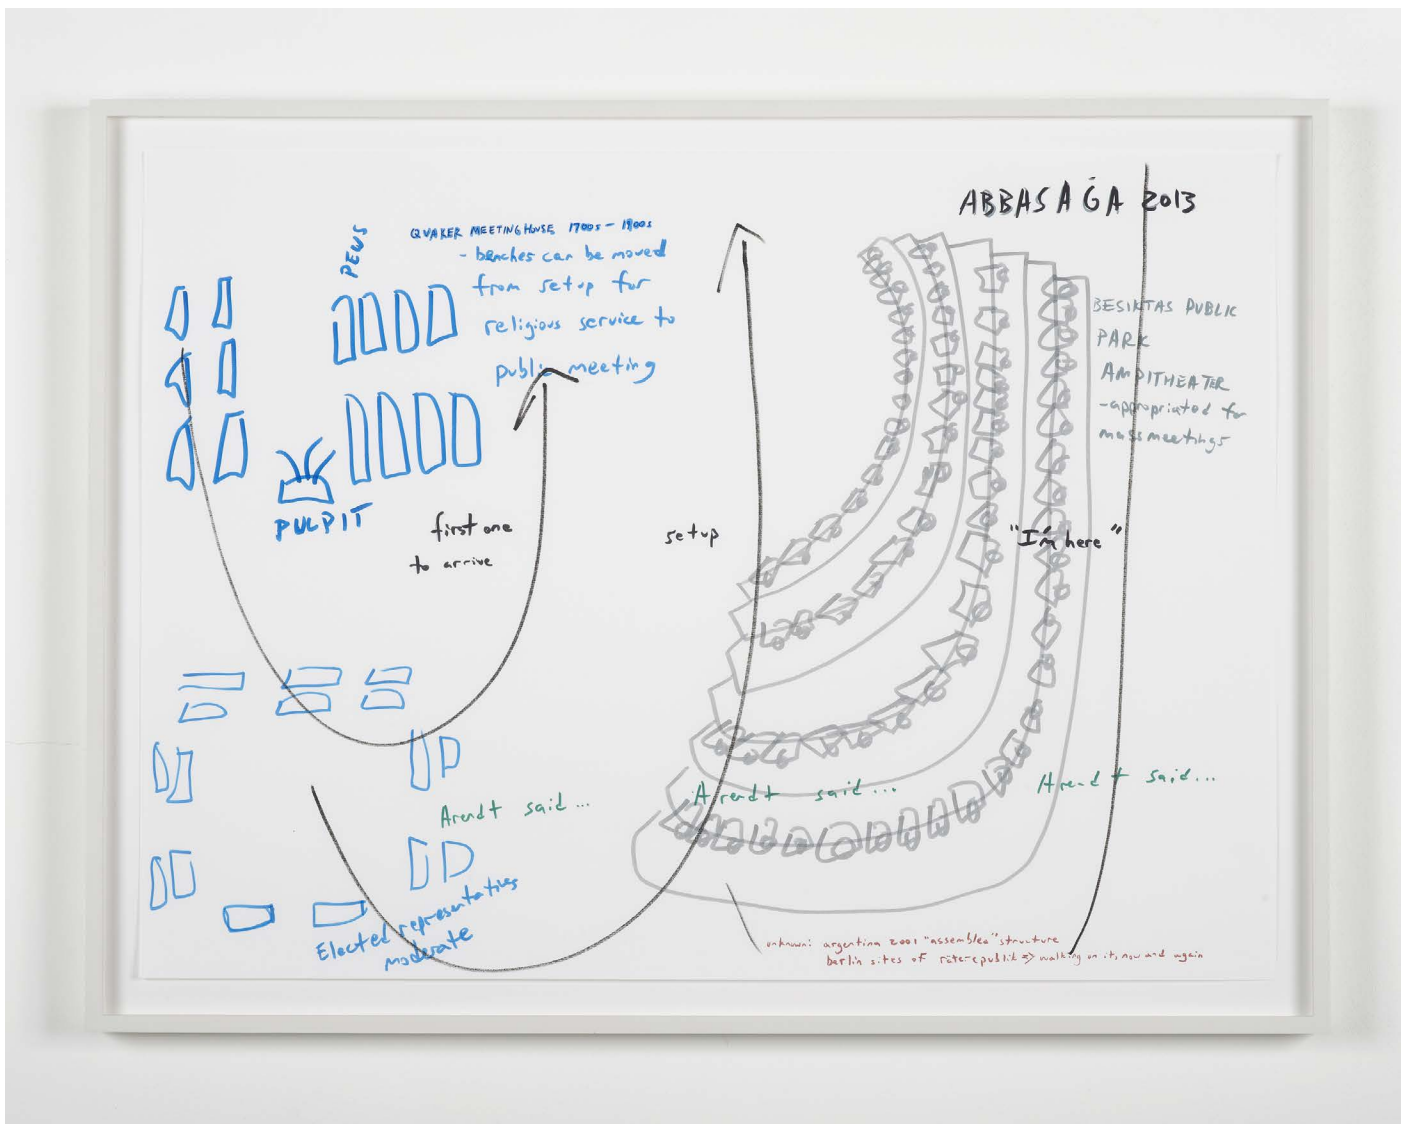 ABBASAĞA 2013
QUAKER MEETINGHOUSE 1700s - 1900s
- benches can be moved
from setup for
religious service to
public meeting
PEWS
PULPIT
first one
to arrive
setup
BESIKTAS PUBLIC
PARK
AMPITHEATER
-appropriated for
mass meetings
"I'm here"
Arendt said...
Arendt said...
Arendt said...
Elected representatives
moderate
unknown: argentina 2001 "assemblea" structure
berlin sites of räterepublik => walking on it, now and again